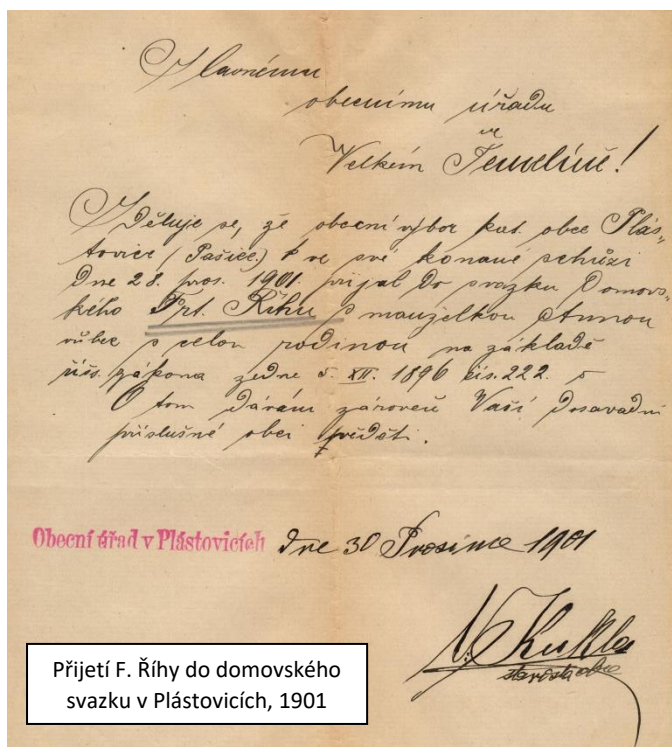 Slavnému
obecnímu úřadu
ve
Velkém Temelíně!
Sděluje se, že obecní výbor kat. obce Plás-
tovice (Pašice) ve své konané schůzi
dne 28. pros. 1901 přijal do svazku domovs-
kého Frt. Říhu s manželkou Annou
vůbec s celou rodinou na základě
říšs. zákona ze dne 5. XII. 1896 čís. 222.
O tom dávám zároveň Vaší dosavadní
příslušné obci věděti.
Obecní úřad v Plástovicích dne 30 Prosince 1901
Kukla
starosta obce
Přijetí F. Říhy do domovského
svazku v Plástovicích, 1901